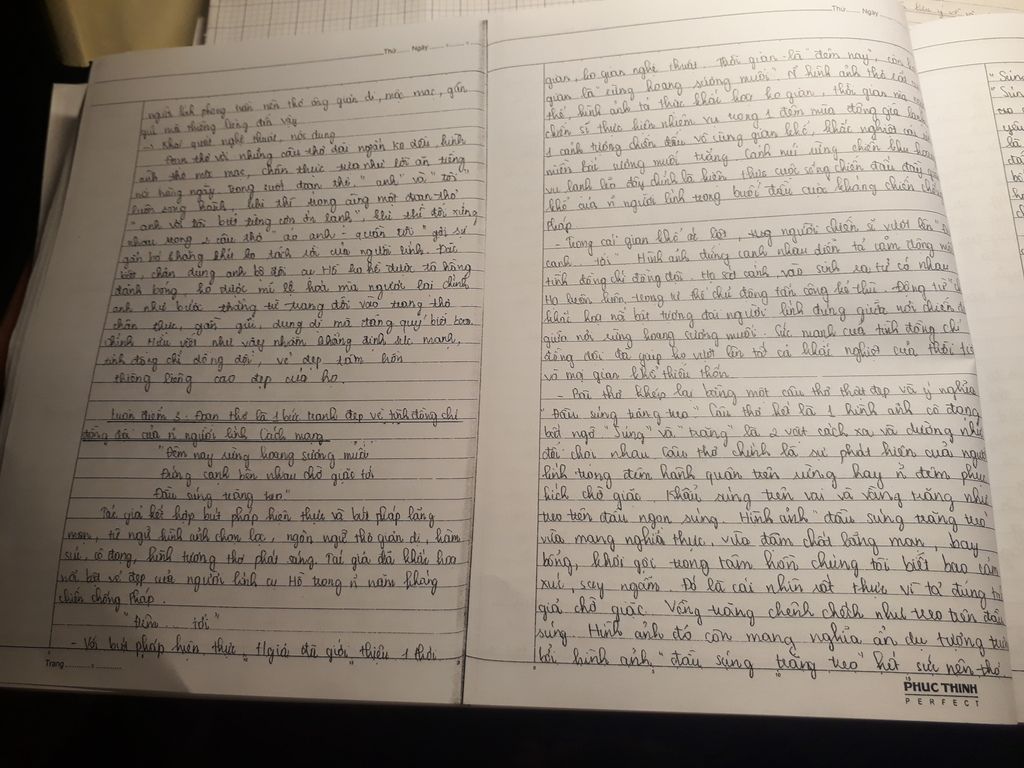 Thứ ..... Ngày
người lính phong trần nên thơ ông giản dị, mộc mạc, gần
gũi mà thiêng liêng đến vậy
nghệ thuật, nội dung
Đoạn thơ với những câu thơ dài ngắn ko đều, hình
ảnh thơ mộc mạc, chân thực tựa như lời ăn tiếng
nói hàng ngày. Trong suốt đoạn thơ, "anh" và "tôi"
luôn song hành, khi thì trong cùng một đoạn thơ
"anh với tôi biết từng cơn ớn lạnh", khi thì đối xứng
nhau trong 2 câu thơ "áo anh - quần tôi" gợi sự
gắn bó khăng khít ko tách rời của người lính. Đặc
biệt, chân dung anh bộ đội cụ Hồ ko hề được tô hồng
đánh bóng, ko được mĩ lệ hoá mà ngược lại chính
anh như bước thẳng từ trang đời vào trang thơ
chân thực, gần gũi, dung dị mà đáng quý biết bao.
Chính Hữu viết như vậy nhằm khẳng định sức mạnh,
tình đồng chí đồng đội, vẻ đẹp tâm hồn
thiêng liêng cao đẹp của họ.
Luận điểm 3. Đoạn thơ là 1 bức tranh đẹp về tình đồng chí
đồng đội của n người lính Cách mạng
"Đêm nay rừng hoang sương muối
Đứng cạnh bên nhau chờ giặc tới
Đầu súng trăng treo"
Tác giả kết hợp bút pháp hiện thực và bút pháp lãng
mạn, từ ngữ hình ảnh chọn lọc, ngôn ngữ thơ giản dị, hàm
súc, cô đọng, hình tượng thơ phát sáng. Tác giả đã khắc hoạ
nổi bật vẻ đẹp của người lính cụ Hồ trong n năm kháng
chiến chống Pháp.
"Đêm ... tới"
- Với bút pháp hiện thực, t/giả đã giới thiệu 1 thời
Trang
Thứ ..... Ngày
gian, ko gian nghệ thuật. Thời gian là "đêm nay", còn
gian là "rừng hoang sương muối". N hình ảnh thơ rất
thế, hình ảnh tả thực khái hoạ ko gian, thời gian mà
chiến sĩ thực hiện nhiệm vụ trong 1 đêm mùa đông giá lạnh
1 cảnh tượng chiến đấu vô cùng gian khổ, khắc nghiệt của
miền bài sương muối trắng. Cảnh núi rừng chiến khu
vu lạnh lẽo đây chính là hiện thực cuộc sống chiến đấu đầy
khổ của n người lính trong buổi đầu của kháng chiến chống
Pháp
- Trong cái gian khổ ác liệt, người chiến sĩ vượt lên "
cạnh ... tới" Hình ảnh đứng cạnh nhau diễn tả cảm động
tình đồng chí đồng đội. Họ sát cánh vào sinh ra tử có nhau
Họ luôn luôn trong tư thế chủ động tấn công kẻ thù. Động từ
khắc hoạ nổi bật tượng đài người lính đứng giữa nơi chiến
giữa nơi rừng hoang sương muối. Sức mạnh của tình đồng chí
đồng đội đã giúp họ vượt lên tất cả khắc nghiệt của thời tiết
và mọi gian khổ thiếu thốn.
- Bài thơ khép lại bằng một câu thơ thật đẹp và ý nghĩa
"Đầu súng trăng treo" Câu thơ kết là 1 hình ảnh cô đọng
bất ngờ "Súng" và "trăng" là 2 vật cách xa và dường như
đối chọi nhau. Câu thơ chính là sự phát hiện của người
lính trong đêm hành quân trên rừng hay n đêm phục
kích chờ giặc. Khẩu súng trên vai và vầng trăng như
treo trên đầu ngọn súng. Hình ảnh "đầu súng trăng treo"
vừa mang nghĩa thực, vừa đậm chất lãng mạn, bay
bổng, khơi gợi trong tâm hồn chúng tôi biết bao cảm
xúc, suy ngẫm. Đó là cái nhìn rất thực vì tả đúng
giả chờ giặc. Vầng trăng chênh chếch như treo trên đầu
súng. Hình ảnh đó còn mang nghĩa ẩn dụ tượng trưng
bởi hình ảnh "đầu súng trăng treo" hết sức nên thơ.
PHUC THINH
PERFECT
"Súng
"Súng